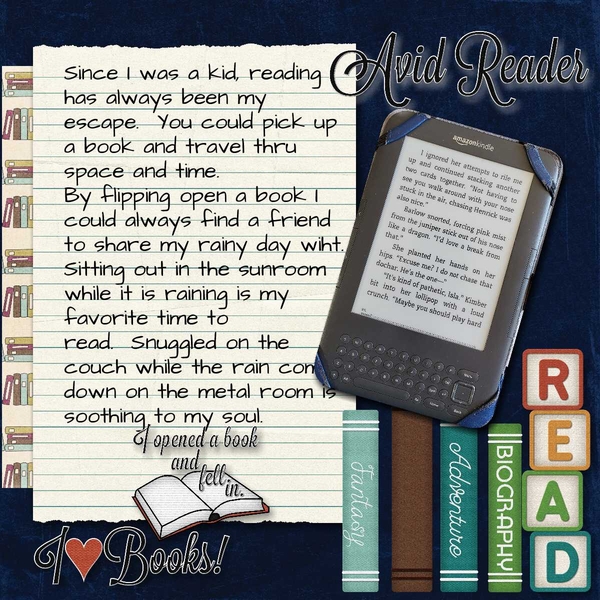 Avid Reader
Since I was a kid, reading
has always been my
escape. You could pick up
a book and travel thru
space and time.
By flipping open a book I
could always find a friend
to share my rainy day wiht.
Sitting out in the sunroom
while it is raining is my
favorite time to
read. Snuggled on the
couch while the rain
down on the metal room is
soothing to my soul.
I opened a book
and
fell
in.
I Books!
amazonkindle
I ignored her attempts to rile me
up and continued stacking another
two cards together. "Not having to
see you walk around with your nose
stuck in the air, chasing Henrick was
also nice."
Barlow snorted, forcing pink mist
from the juniper stick out of his nose
like a dragon. "I'd love a break from
that."
She planted her hands on her
hips "Excuse me? I do not chase that
dochar. He's the one—"
"It's kind of pathetic, Isla." Kimber
bit into her lollipop with a loud
crunch. "Maybe you should play hard
Fantasy
Adventure
BIOGRAPHY
R
E
A
D